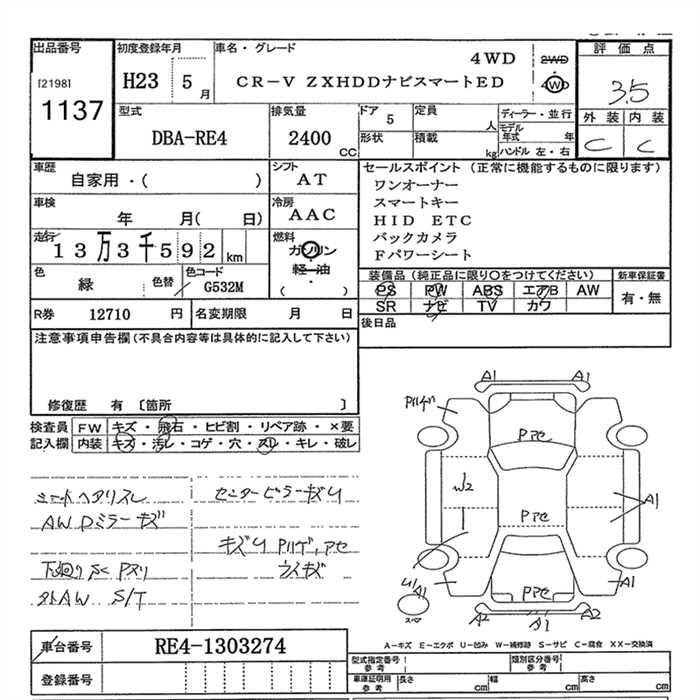 出品番号
[2198]
1137
初度登録年月
H23 5 月
車名・グレード
4WD
CR-V ZXHDDナビスマートED
2WD
4WD
評価点
3.5
外装 内装
C C
型式
DBA-RE4
排気量
2400 CC
ドア 5
定員 人
形状
積載 kg
ディーラー・並行
モデル年式 年
ハンドル 左・右
車歴
自家用・( )
シフト
AT
セールスポイント (正常に機能するものに限ります)
ワンオーナー
スマートキー
HID ETC
バックカメラ
Fパワーシート
車検
年 月( 日)
冷房
AAC
走行
13万3千592km
燃料
ガソリン
・
軽・油
( )
色
緑
色替
色コード
G532M
装備品 (純正品に限り○をつけてください)
PS PW ABS エアB AW
SR ナビ TV カワ
新車保証書
有・無
R券 12710 円
名変期限 月 日
後日品
注意事項申告欄 (不具合内容等は具体的に記入して下さい)
修復歴 有 〔箇所 〕
検査員記入欄
FW キズ・飛石・ヒビ割・リペア跡・×要
内装 キズ・汚レ・コゲ・穴・スレ・キレ・破レ
シートヘタリスレ
AW Dミラーキズ
センターピラーキズU
キズU
下廻り
AW S/T
A1 A1
Pアセ
W2
Pアセ
A1
Pアセ
A1
A1
スペア
A2 A1 A2
A-キズ E-エクボ U-凹み W-補修跡 S-サビ C-腐食 XX-交換済
車台番号 RE4-1303274
登録番号
型式指定番号
参考
類別区分番号
参考
車庫証明用
参考
長さ cm
幅 cm
高さ cm